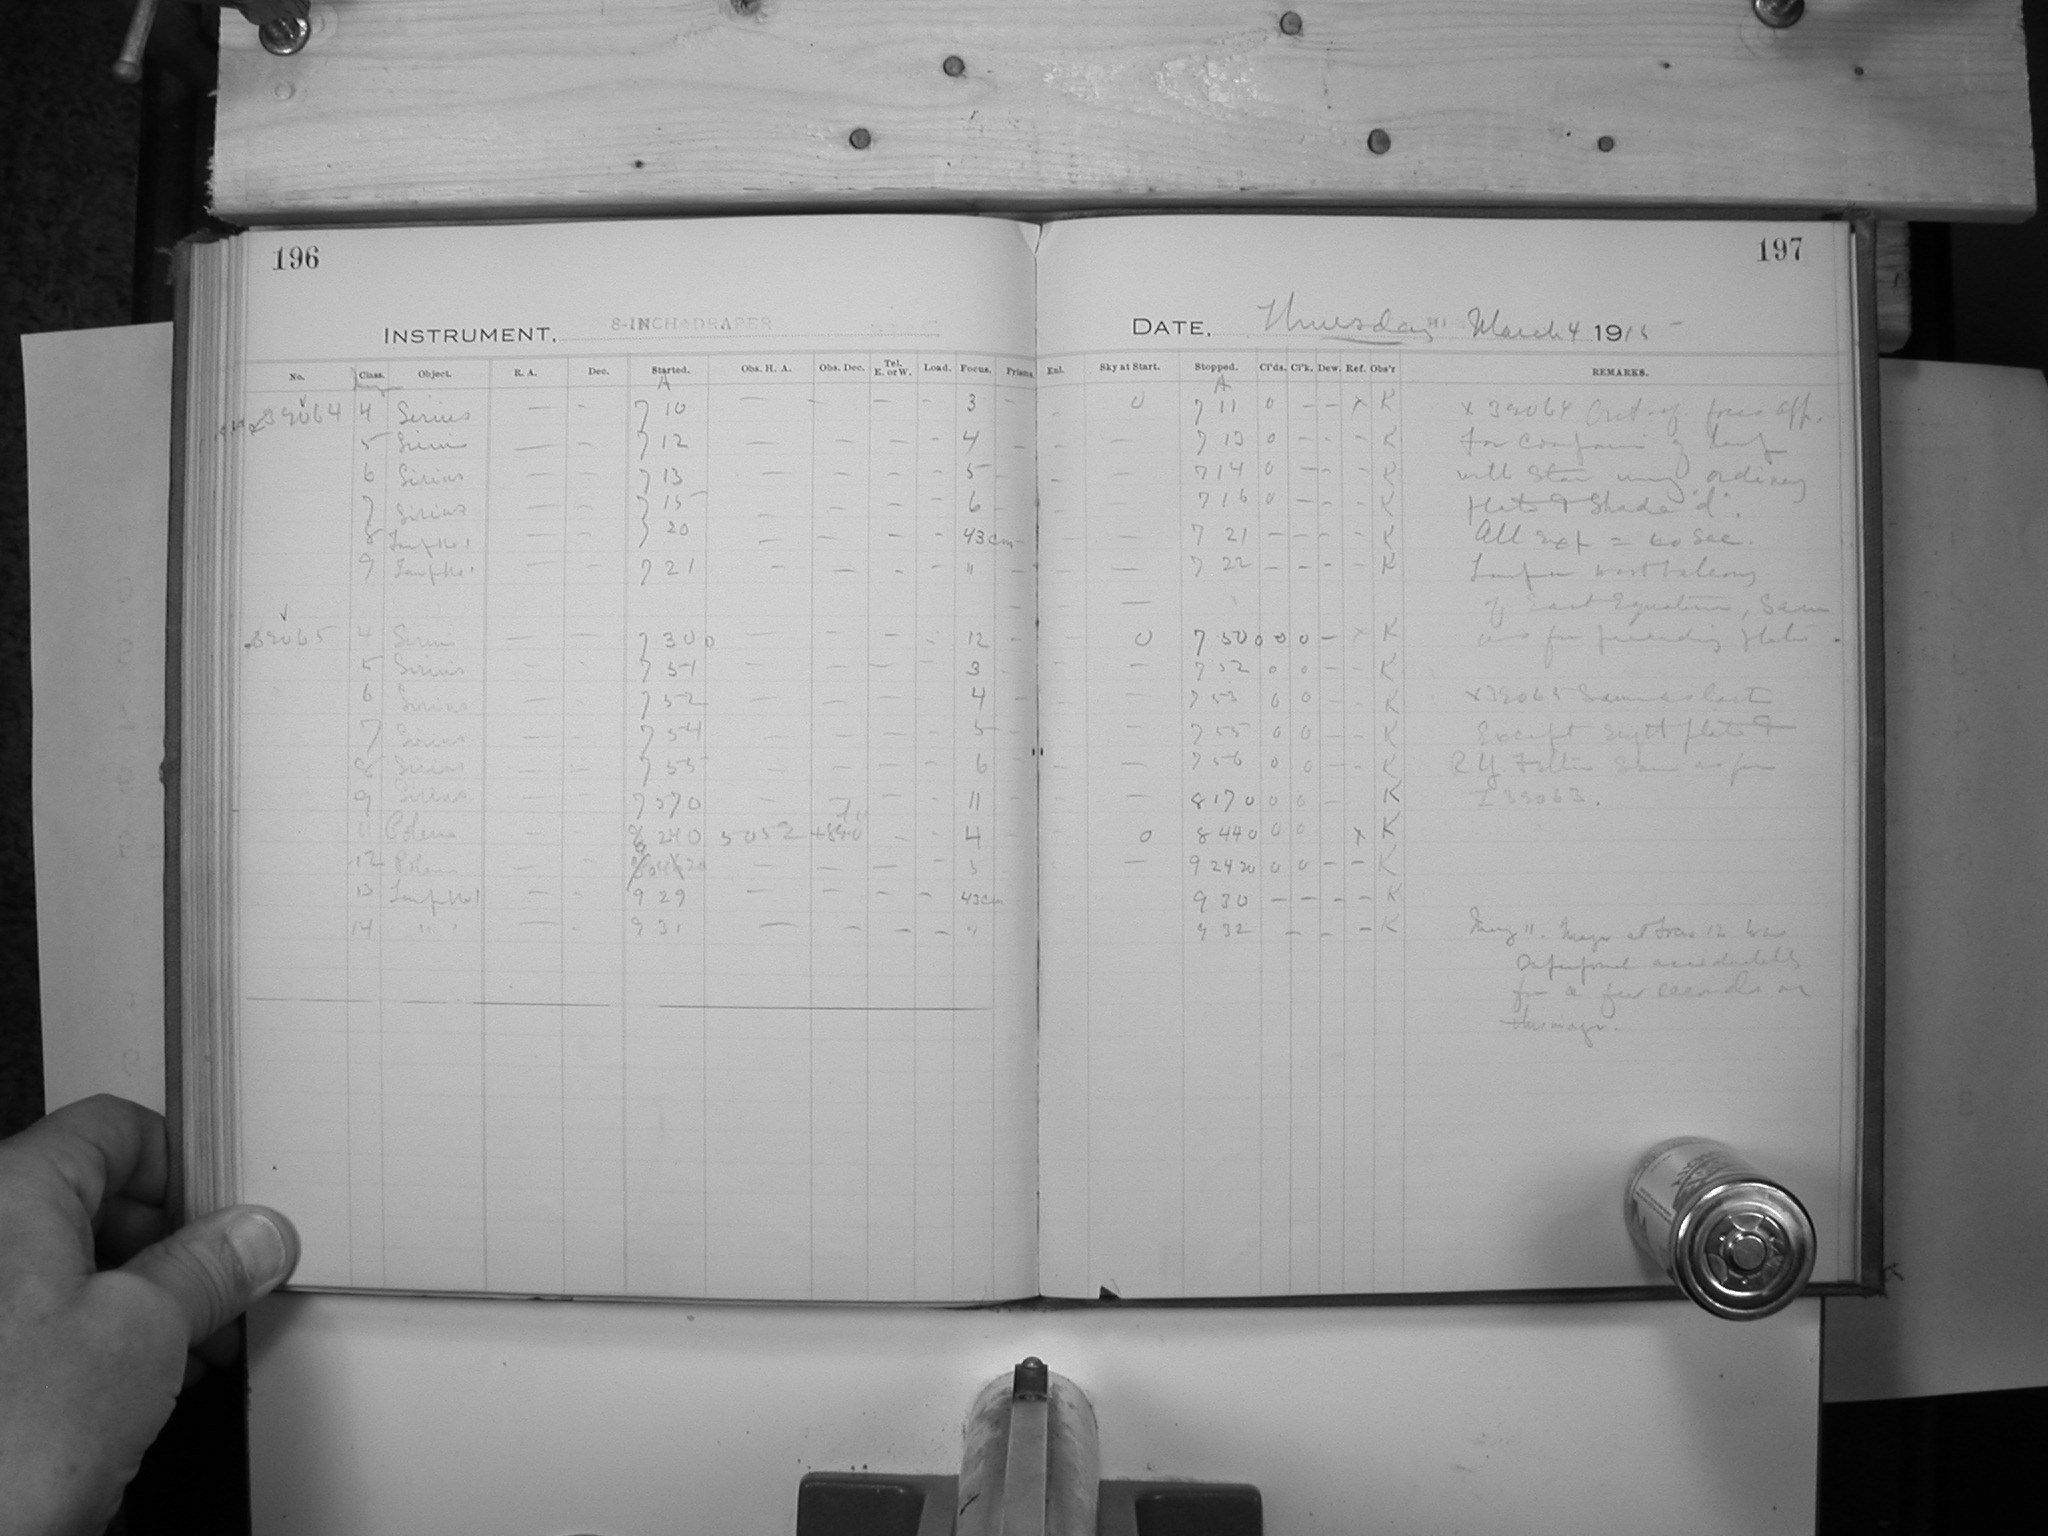 196
197
INSTRUMENT, 8-INCH DRAPER
DATE, Thursday March 4 1915
No. Class. Object. R. A. Dec. Started. Obs. H. A. Obs. Dec. Tel. E. or W. Load. Focus. Prisms. Enl. Sky at Start. Stopped. Cl'ds. Cl'k. Dew. Ref. Obs'r REMARKS.
A A
39064 4 Sirius — - 7 10 — — - - 3 - - 0 7 11 0 - - x K x 39064 Out of focus app.
5 Sirius — - 7 12 — — - - 4 - - — 7 13 0 - - - K for comparison of lamp
6 Sirius — - 7 13 — — - - 5 - - — 7 14 0 - - - K with star using ordinary
7 Sirius — - 7 15 — — - - 6 - - — 7 16 0 - - - K plate & Shade "d".
8 Lamp No 1 — - 7 20 — — - - 43 cm - - — 7 21 - - - - K All exp = 60 sec.
9 Lamp No 1 — - 7 21 — — - - " - - — 7 22 - - - - K Lamp on west balcony
of East Equatorial, Same
39065 4 Sirius — - 7 30 0 — - - - 12 - - 0 7 50 0 0 0 - x K as for preceding plate.
5 Sirius — - 7 51 — — - - 3 - - — 7 52 0 0 - - K
6 Sirius — - 7 52 — — - - 4 - - — 7 53 0 0 - - K x 39065 Same as last
7 Sirius — - 7 54 — — - - 5 - - — 7 55 0 0 - - K Except plate &
8 Sirius — - 7 55 — — - - 6 - - — 7 56 0 0 - - K R Y Filter same as for
9 Sirius — - 7 57 0 — - - 11 - - — 8 17 0 0 0 - K I 39063.
11 Polaris - 8 24 0 5 05 2 +89 0 - - 4 - - 0 8 44 0 0 0 x K
12 Polaris — — - - 5 — 9 24 20 0 0 - - K
13 Lamp No 1 — - 9 29 — — - - 43 cm 9 30 - - - - K
14 " " ' — - 9 31 — - - - " 9 32 - - - K Image at focus 12 was
superposed accidentally
for a few seconds on
this image.